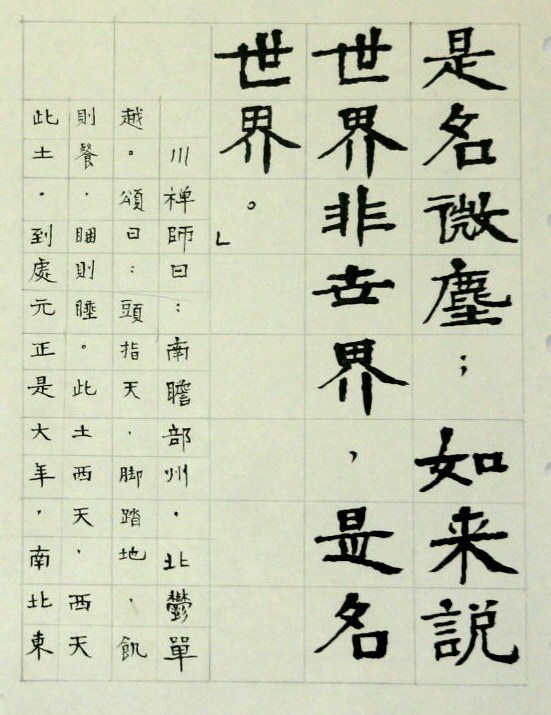 是名微塵；如来説
世界非世界，是名
世界。」
川禅師曰：南瞻部州．北鬱單
越。頌曰：頭指天．脚踏地．飢
則餐，睏則睡。此土西天，西天
此土．到處元正是大年，南北東